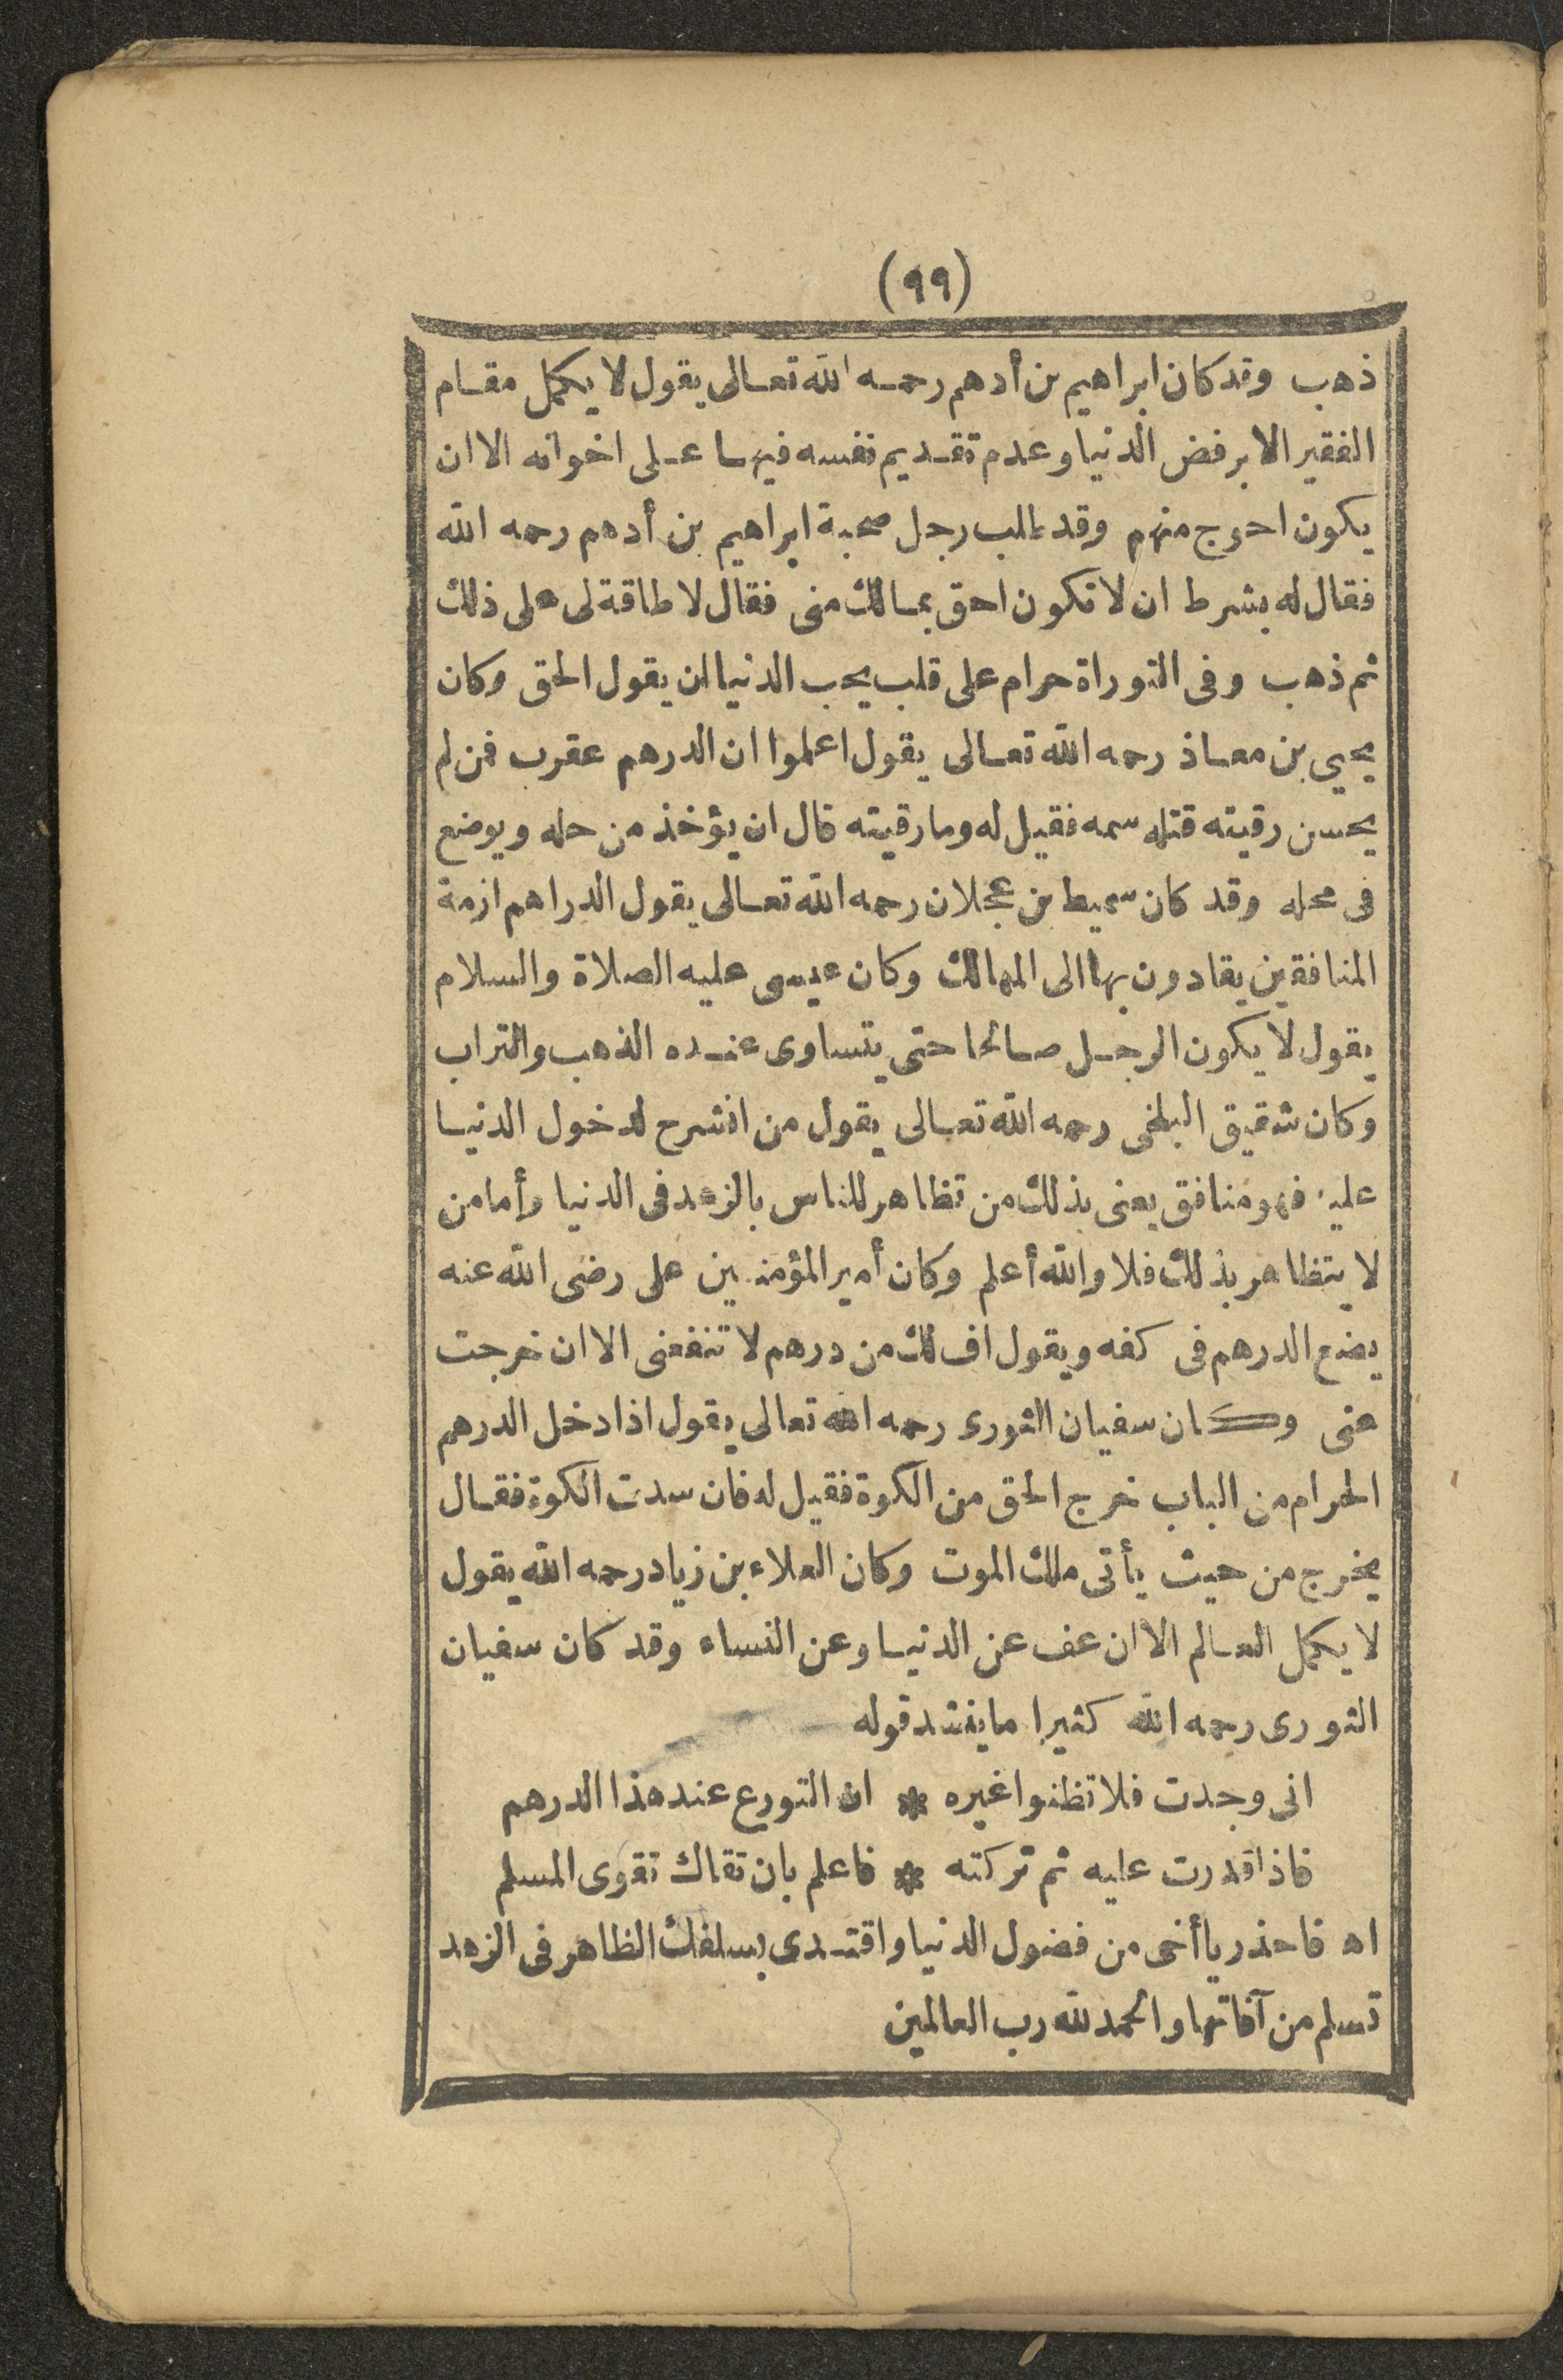 (٩٩)
ذهب وقد كان ابراهيم بن أدهم رحمه الله تعالى يقول لا يكمل مقام
الفقير الا برفض الدنيا وعدم تقديم نفسه فيها على اخوانه الا ان
يكون احوج منهم وقد طلب رجل صحبة ابراهيم بن أدهم رحمه الله
فقال له بشرط ان لا تكون احق بمالك منى فقال لا طاقة لى على ذلك
ثم ذهب وفى التوراة حرام على قلب يحب الدنيا ان يقول الحق وكان
يحيى بن معاذ رحمه الله تعالى يقول اعلموا ان الدرهم عقرب فمن لم
يحسن رقيته قتله سمه فقيل له وما رقيته قال ان يؤخذ من حله ويوضع
فى محله وقد كان سميط بن عجلان رحمه الله تعالى يقول الدراهم ازمة
المنافقين يقادون بها الى المهالك وكان عيسى عليه الصلاة والسلام
يقول لا يكون الرجل صالحا حتى يتساوى عنده الذهب والتراب
وكان شقيق البلخى رحمه الله تعالى يقول من انشرح لدخول الدنيا
عليه فهو منافق يعنى بذلك من تظاهر للناس بالزهد فى الدنيا وأما من
لا يتظاهر بذلك فلا والله أعلم وكان أمير المؤمنين على رضى الله عنه
يضع الدرهم فى كفه ويقول اف لك من درهم لا تنفعنى الا ان خرجت
عنى وكان سفيان الثورى رحمه الله تعالى يقول اذا دخل الدرهم
الحرام من الباب خرج الحق من الكوة فقيل له فان سدت الكوة فقال
يخرج من حيث يأتى ملك الموت وكان العلاء بن زياد رحمه الله يقول
لا يكمل العالم الا ان عف عن الدنيا وعن النساء وقد كان سفيان
الثورى رحمه الله كثيرا ما ينشد قوله
انى وجدت فلا تظنوا غيره * ان التورع عند هذا الدرهم
فاذا قدرت عليه ثم تركته * فاعلم بان تقاك تقوى المسلم
اه فاحذر يا أخى من فضول الدنيا واقتدى بسلفك الظاهر فى الزهد
تسلم من آفاتها والحمد لله رب العالمين